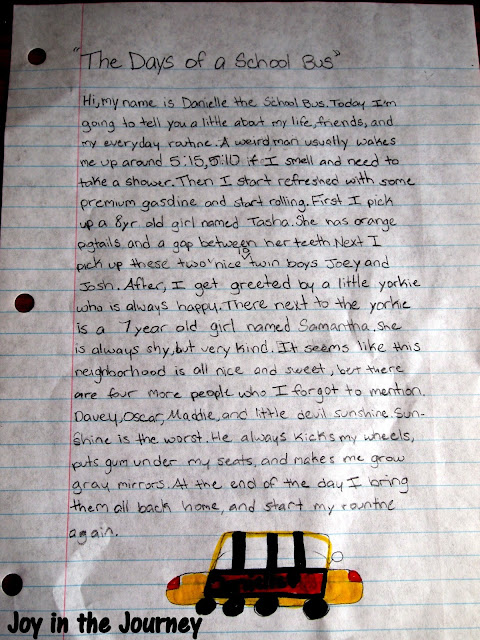 "The Days of a School Bus"
Hi, my name is Danielle the School Bus. Today I'm
going to tell you a little about my life, friends, and
my everyday routine. A weird man usually wakes
me up around 5:15, 5:10 if I smell and need to
take a shower. Then I start refreshed with some
premium gasoline and start rolling. First I pick
up a 8yr old girl named Tasha. She has orange
pgtails and a gap between her teeth Next I
pick up these two nice 10 twin boys Joey and
Josh. After, I get greeted by a little yorkie
who is always happy. There next to the yorkie
is a 7 year old girl named Samantha. She
is always shy, but very kind. It seems like this
neighborhood is all nice and sweet, but there
are four more people who I forgot to mention.
Davey, Oscar, Maddie, and little devil sunshine. Sun-
shine is the worst. He always kicks my wheels,
puts gum under my seats, and makes me grow
gray mirrors. At the end of the day I bring
them all back home, and start my rountne
again.
Joy in the Journey